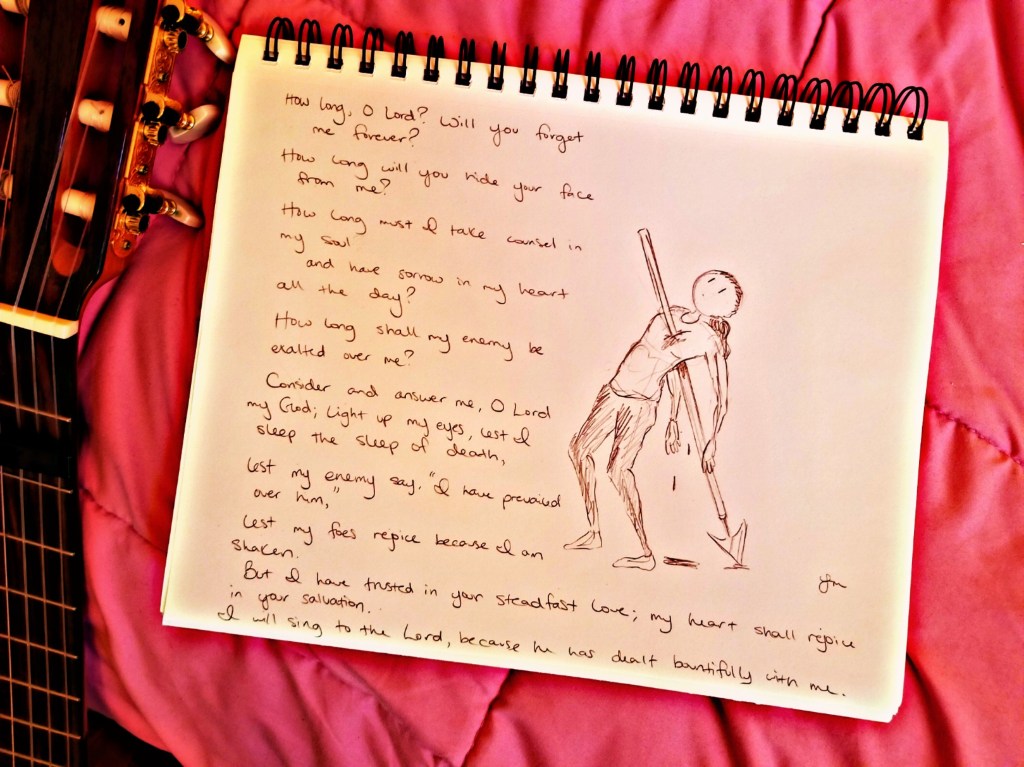 How long, O Lord? Will you forget
me forever?
How long will you hide your face
from me?
How long must I take counsel in
my soul
and have sorrow in my heart
all the day?
How long shall my enemy be
exalted over me?
Consider and answer me, O Lord
my God; Light up my eyes, lest I
sleep the sleep of death,
Lest my enemy say, "I have prevailed
over him,"
Lest my foes rejoice because I am
shaken.
But I have trusted in your steadfast love; my heart shall rejoice
in your salvation.
I will sing to the Lord, because he has dealt bountifully with me.